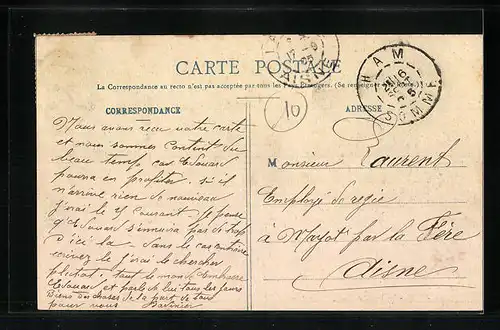 CARTE POSTALE
La Correspondance au recto n'est pas acceptée par tous les Pays Etrangers. (Se renseigner
CORRESPONDANCE
ADRESSE
HAM
SOMME
AISNE
T
10
Nous avons reçu votre carte
et nous sommes content du
beau temps, car Edouard
pourra en profiter. s'il
n'arrive rien de nouveau
j'irai le 25 Courant. Je pense
q'Edouard s'ennuira pas de trop
d'ici la - dans le cas contraire
écrivez le j'irai le chercher
plutôt. tout le monde Embrasse
Edouard et parle de lui tous les jours
Biens des choses de la part de tous
pour vous
Monsieur Laurent
Employé de régie
à Mayot par la Fère
Aisne